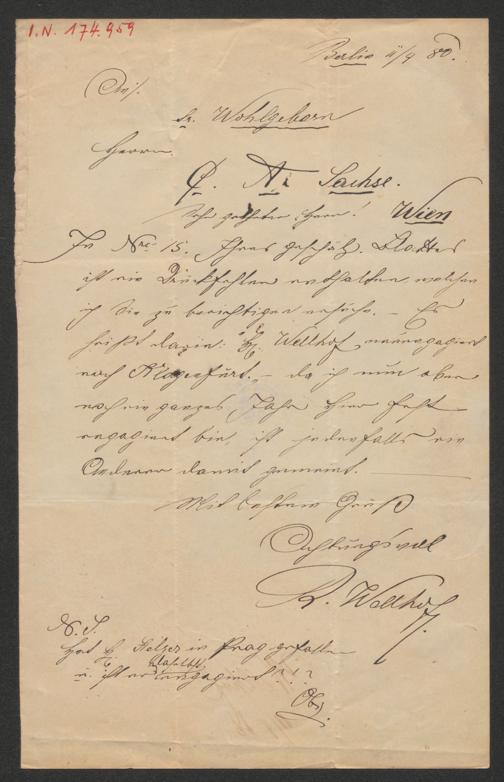 I.N. 174.959
Berlin 11/9 80.
An/.
Sr. Wohlgeborn
Herrn
C. A. Sachse.
Sehr geehrter Herr! Wien
In Nro 15. Ihres geschätz. Blattes
ist ein Druckfehler enthalten, welchen
ich Sie zu berichtigen ersuche. – Es
heißt darin: H. Wellhof, neuengagiert
nach Klagenfurt. – da ich nun aber
noch ein ganzes Jahr hier fest
engagiert bin, ist jedenfalls ein
Anderer damit gemeint.
Mit bestem Gruß
Achtungsvoll
R. Wellhof
N. S.
Hat H. Kelzer in Prag gefallen
u. ist er daselbst engagiert???
Ob.